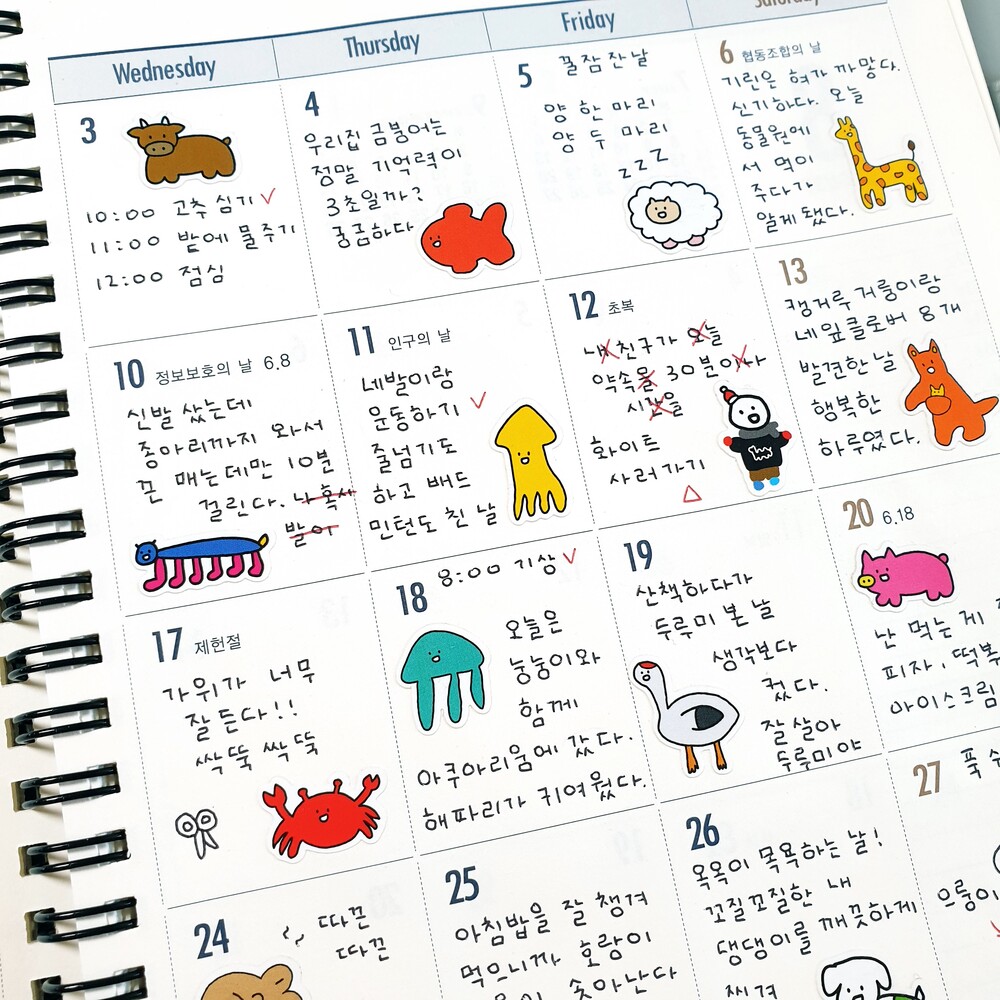 Wednesday
Thursday
Friday
Saturday
3
10:00 고추 심기 ✓
11:00 밭에 물주기
12:00 점심
4
우리집 금붕어는
정말 기억력이
3초일까?
궁금하다
5 꿀잠잔날
양 한 마리
양 두 마리
z z Z
6 협동조합의 날
기린은 혀가 까맣다.
신기하다. 오늘
동물원에
서 먹이
주다가
알게 됐다.
10 정보보호의 날 6.8
신발 샀는데
종아리까지 와서
끈 매는데만 10분
걸린다. 나 혹시
발이
11 인구의 날
네발이랑
운동하기 ✓
줄넘기도
하고 배드
민턴도 친 날
12 초복
내 친구가 오늘
약속을 30분이나
화이트
사러가기
△
13
캥거루 거룽이랑
네잎클로버 8개
발견한 날
행복한
하루였다.
17 제헌절
가위가 너무
잘 든다!!
싹뚝 싹뚝
18 8:00 기상 ✓
오늘은
눙눙이와
함께
아쿠아리움에 갔다.
해파리가 귀여웠다.
19
산책하다가
두루미 본 날
생각보다
컸다.
잘살아
두루미야
20 6.18
난 먹는 게
피자, 떡볶
아이스크림
24
따끈
따끈
25
아침밥을 잘 챙겨
먹으니까 호랑이
솟아난다
26
옥옥이 목욕하는 날!
꼬질꼬질한 내
댕댕이를 깨끗하게
씻겨
27 푹
으룽이